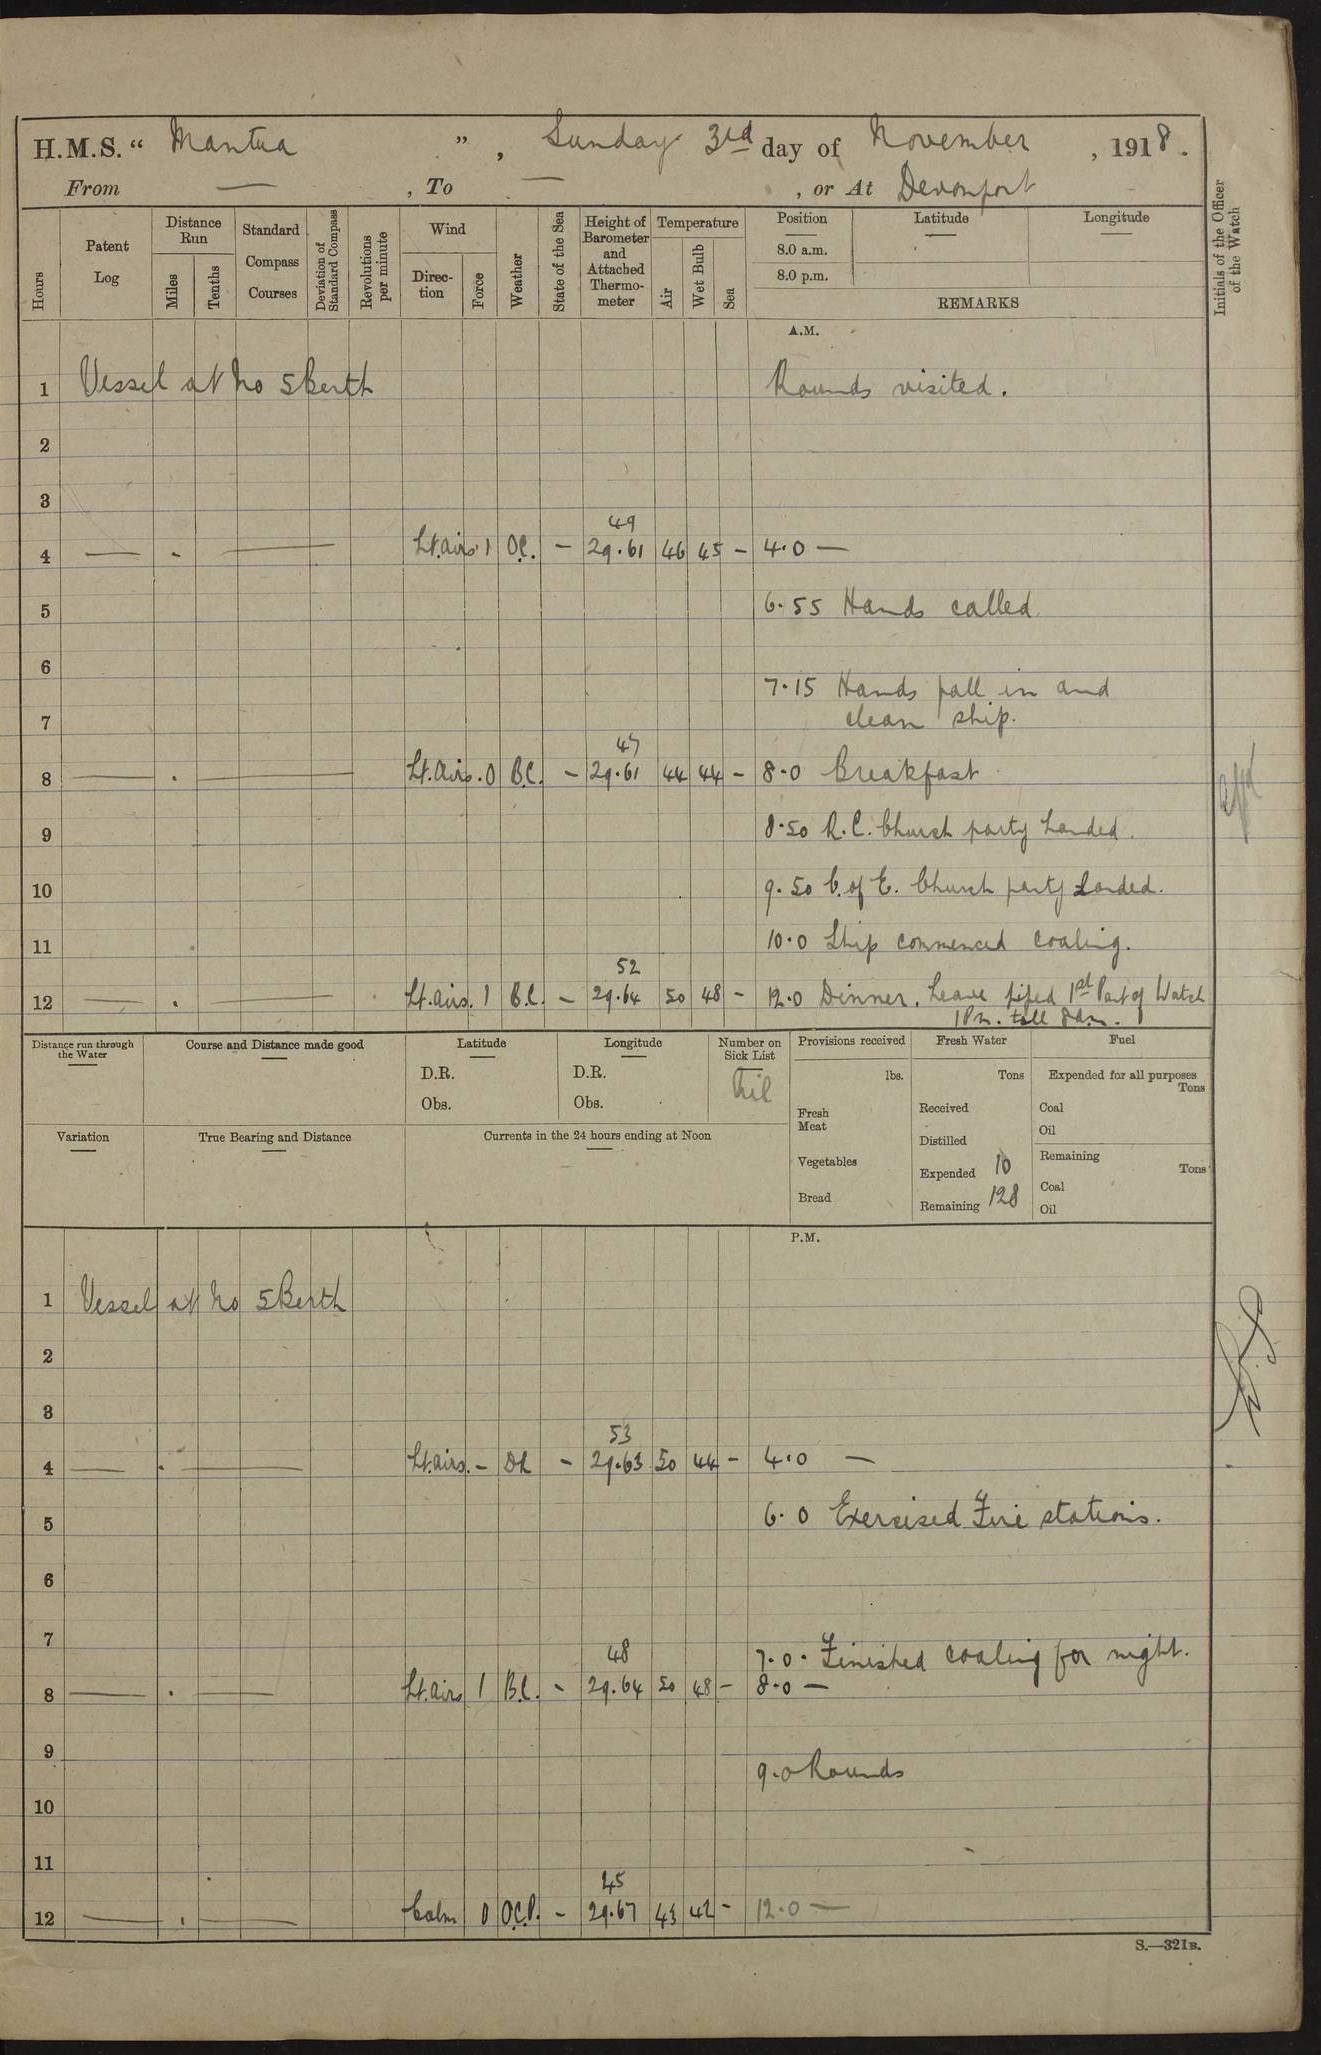 H.M.S. “ Mantua ” , Sunday 3rd day of November , 1918.
From — , To — , or At Devonport
Hours
Patent Log
Distance Run
Miles
Tenths
Standard Compass Courses
Deviation of Standard Compass
Revolutions per minute
Wind
Direc-tion
Force
Weather
State of the Sea
Height of Barometer and Attached Thermo-meter
Temperature
Air
Wet Bulb
Sea
Position
Latitude
Longitude
8.0 a.m.
8.0 p.m.
REMARKS
Initials of the Officer of the Watch
A.M.
1 Vessel at No 5 Berth Rounds visited.
2
3
49
4 — . — Lt. airs. 1 O.C. — 29.61 46 45 — 4.0 —
5 6.55 Hands called
6
7.15 Hands fall in and
7 clean ship.
47
8 — . — Lt. Airs. 0 B.C. — 29.61 44 44 — 8.0 Breakfast
9 8.50 R.C. Church party Landed.
10 9.50 C. of E. Church party Landed.
11 10.0 Ship commenced coaling.
52
12 — . — Lt. airs. 1 B.C. — 29.64 50 48 — 12.0 Dinner. Leave piped 1st Part of Watch
1 Pm. till 8 am.
Distance run through the Water
Course and Distance made good
Latitude
D.R.
Obs.
Longitude
D.R.
Obs.
Number on Sick List
Nil
Provisions received
lbs.
Fresh Meat
Vegetables
Bread
Fresh Water
Tons
Received
Distilled
Expended 10
Remaining 128
Fuel
Expended for all purposes
Tons
Coal
Oil
Remaining
Tons
Coal
Oil
Variation
True Bearing and Distance
Currents in the 24 hours ending at Noon
P.M.
1 Vessel at No 5 Berth
2
3
53
4 — . — Lt. airs. — — 29.63 50 44 — 4.0 —
5 6.0 Exercised Fire stations.
6
7 7.0. Finished coaling for night.
48
8 — . — Lt. airs 1 B.C. — 29.64 50 48 — 8.0 —
9
9.0 Rounds
10
11
45
12 — . — Calm 0 O.C.P. — 29.67 43 42 — 12.0 —
S.—321B.